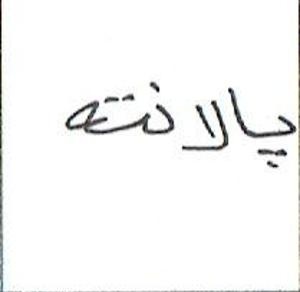 پالانته